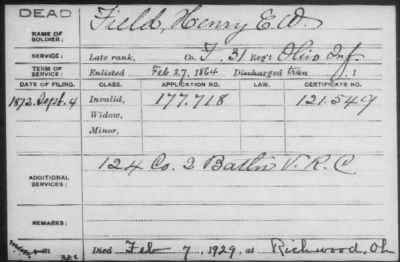 DEAD
Field, Henry E. W.
NAME OF SOLDIER:
SERVICE: Late rank, Co. I, 31 Reg't Ohio Inf.
TERM OF SERVICE Enlisted Feb 27, 1864 Discharged tran 1
DATE OF FILING. CLASS. APPLICATION NO. LAW. CERTIFICATE NO.
1873. Sept. 4 Invalid, 177.718 121.549
Widow,
Minor,
124 Co. 2 Battln V. R. C
ADDITIONAL SERVICES:
REMARKS:
Died Feb 7, 1929, at Richwood, Oh